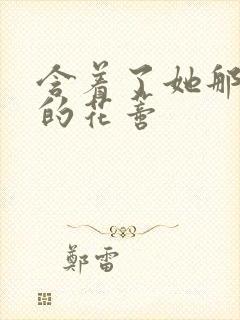 含着了她那
的花蒂
鄭雷